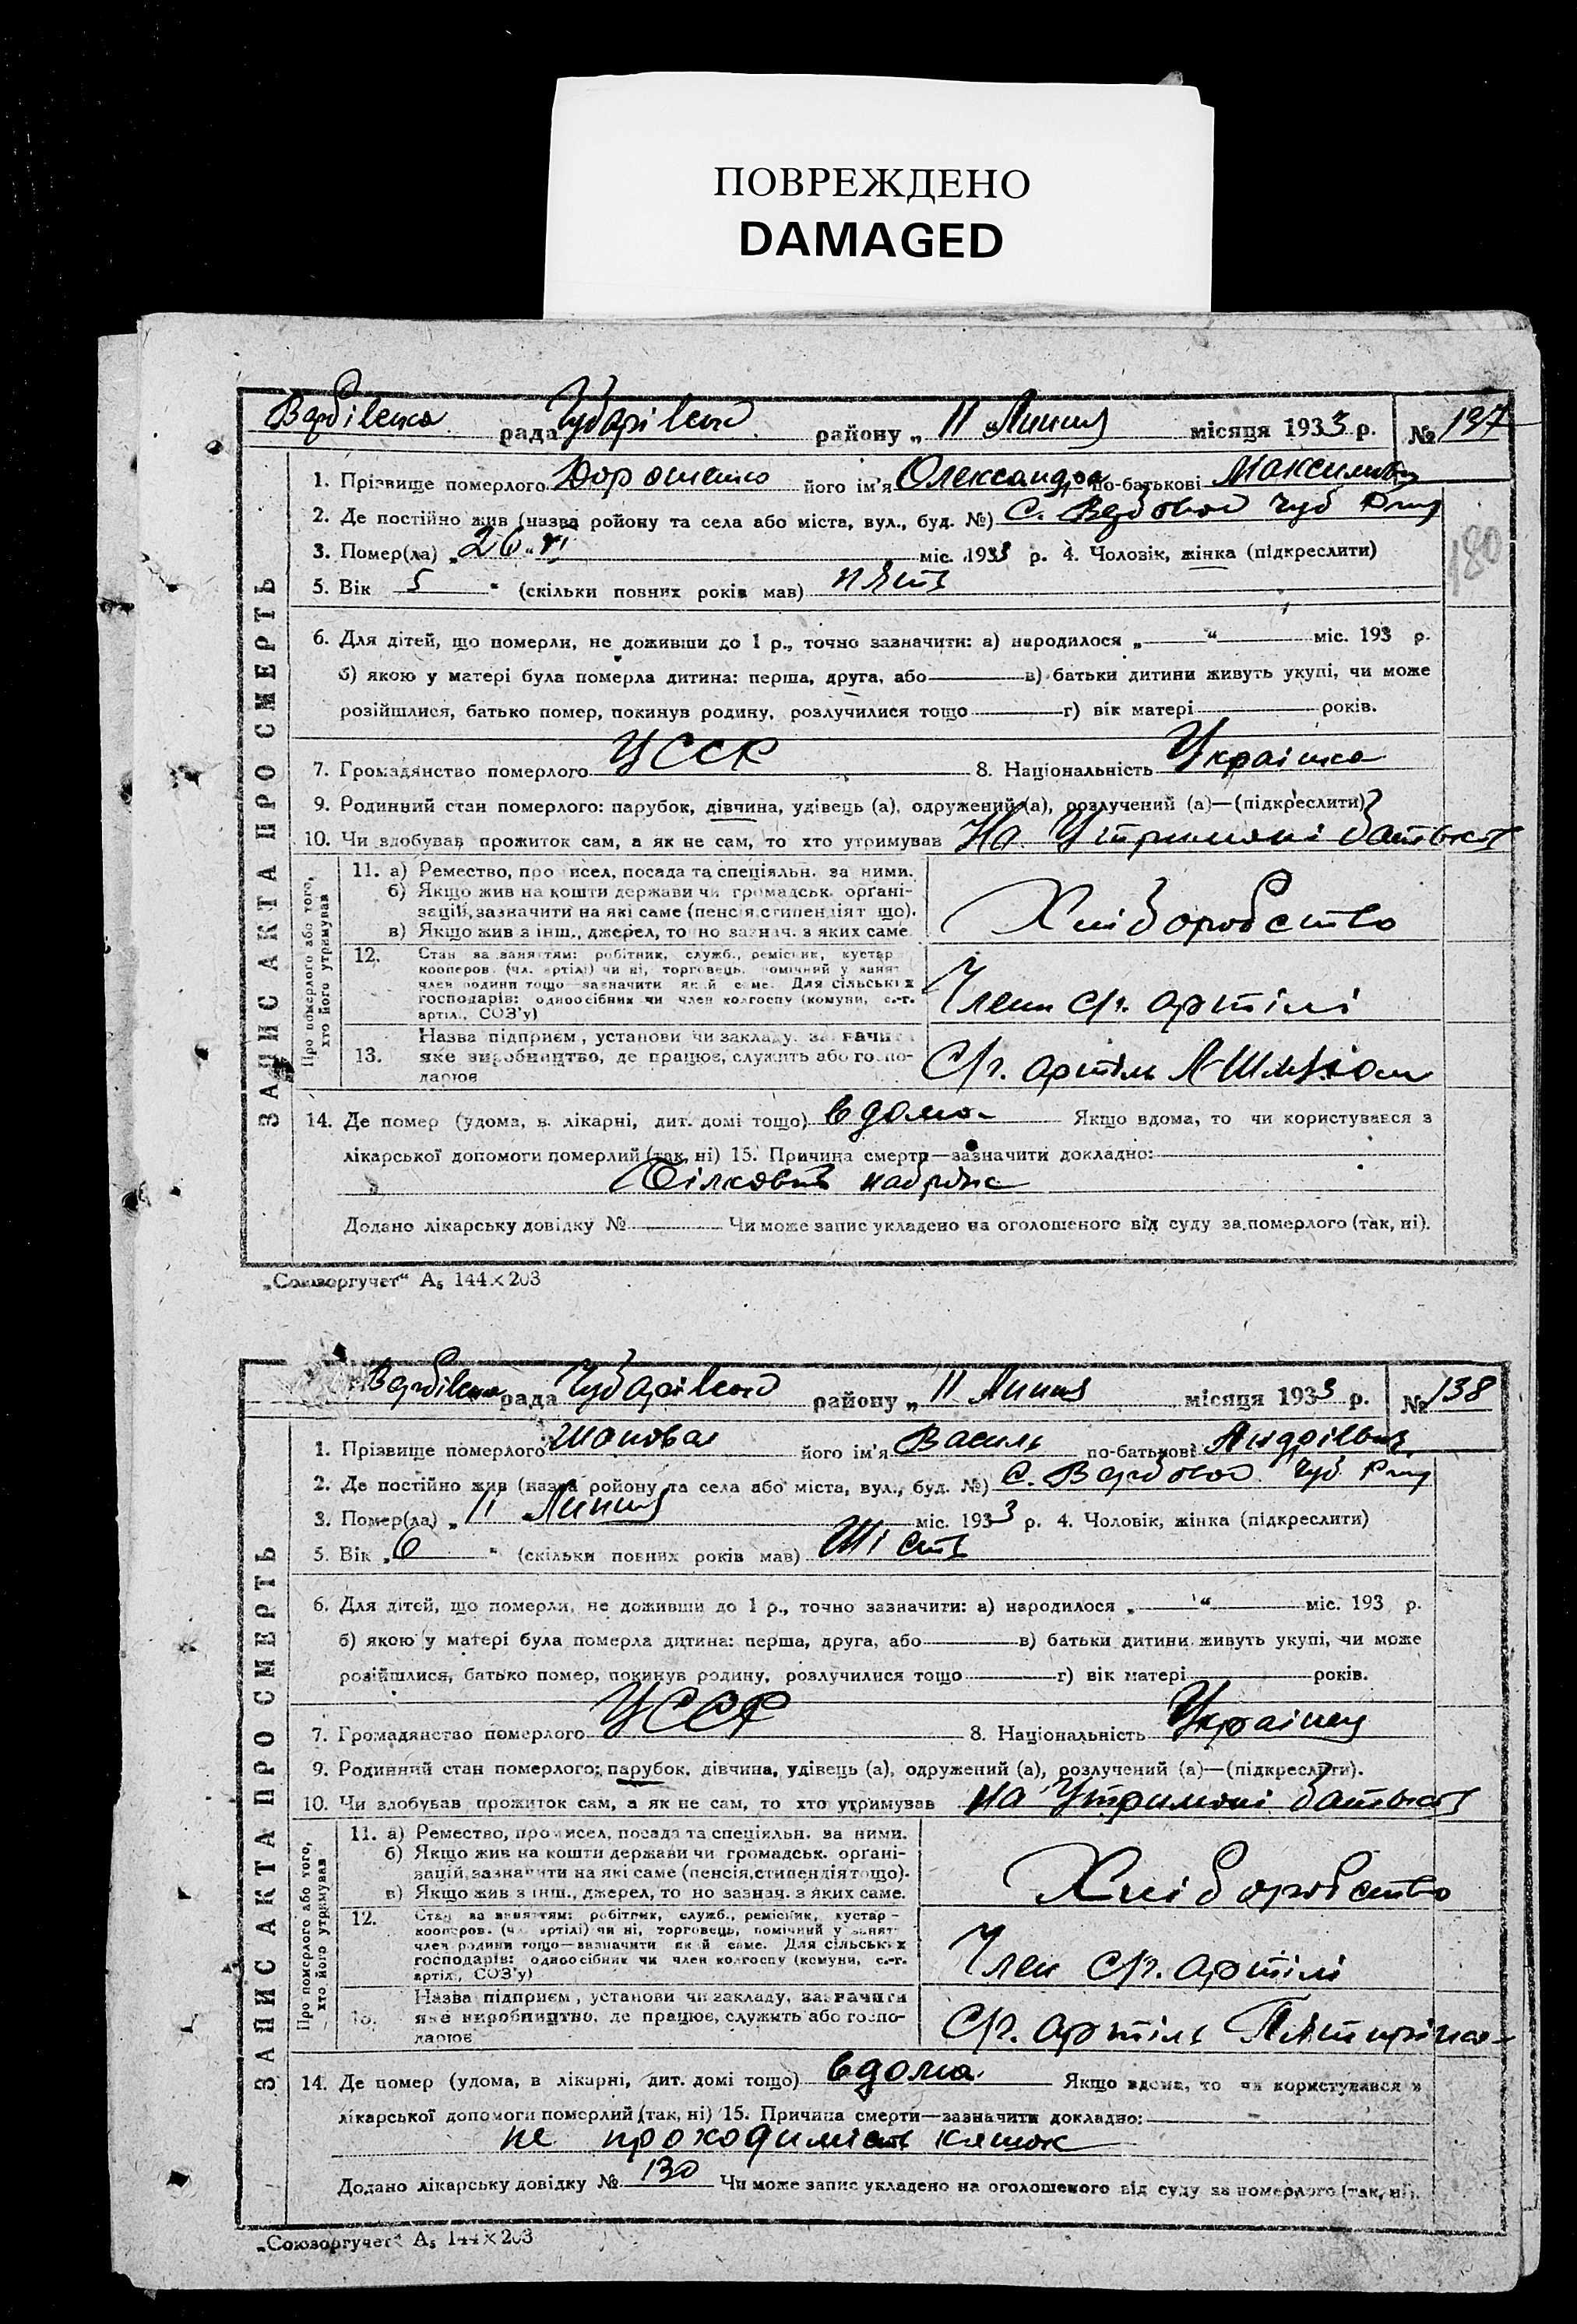 ПОВРЕЖДЕНО
DAMAGED
Вербівська рада Чубарівськ району „ 11 Липня місяця 1933 р. № 137
180
ЗАПИС АКТА ПРО СМЕРТЬ
1. Прізвище померлого Дорошенко його ім'я Олександра по-батькові Максимівн
2. Де постійно жив (назва ройону та села або міста, вул., буд. №) С. Вербовое Чуб Рну
3. Помер(ла) „ 26 „ VI міс. 1933 р. 4. Чоловік, жінка (підкреслити)
5. Вік 5 " (скільки повних років мав) пять
6. Для дітей, що померли, не доживши до 1 р., точно зазначити: а) народилося „ “ міс. 193 р.
б) якою у матері була померла дитина: перша, друга, або в) батьки дитини живуть укупі, чи може
розійшлися, батько помер, покинув родину, розлучилися тощо г) вік матері років.
7. Громадянство померлого УССР 8. Національність Українка
9. Родинний стан померлого: парубок, дівчина, удівець (а), одружений (а), розлучений (а)—(підкреслити)
10. Чи здобував прожиток сам, а як не сам, то хто утримував На Утримані батьків
Про померлого або того, хто його утримував
11. а) Ремество, промисел, посада та спеціяльн. за ними.
б) Якщо жив на кошти держави чи громадськ. організацій, зазначити на які саме (пенсія, стипендіят що).
в) Якщо жив з інш., джерел, точно зазнач. з яких саме.
Хліборобство
12. Стан за заняттям: робітник, служб., ремісник, кустар
кооперов. (чл. артілі) чи ні, торговець, помічний у занят
член родини тощо—зазначити який саме. Для сільських
господарів: одноосібник чи член колгоспу (комуни, с.-г.
артіл., СОЗ'у)
Член с/г. артілі
13. Назва підприєм, установи чи закладу, зазначити
яке виробництво, де працює, служить або господарює
С/г. артіль
14. Де помер (удома, в лікарні, дит. домі тощо) вдома Якщо вдома, то чи користувався з
лікарської допомоги померлий (так, ні) 15. Причина смерти—зазначити докладно:
Білковий набряк
Додано лікарську довідку № Чи може запис укладено на оголошеного від суду за померлого (так, ні).
„Союзоргучет“ А₅ 144×203
Вербівська рада Чубарівськ району „ 11 Липня місяця 1933 р. № 138
ЗАПИС АКТА ПРО СМЕРТЬ
1. Прізвище померлого Шаповал його ім'я Василь по-батькові Андрієвич
2. Де постійно жив (назва ройону та села або міста, вул., буд. №) С. Вербовое Чуб Рну
3. Помер(ла) „ 11 Липня міс. 1933 р. 4. Чоловік, жінка (підкреслити)
5. Вік „ 6 " (скільки повних років мав) Шість
6. Для дітей, що померли, не доживши до 1 р., точно зазначити: а) народилося „ “ міс. 193 р.
б) якою у матері була померла дитина: перша, друга, або в) батьки дитини живуть укупі, чи може
розійшлися, батько помер, покинув родину, розлучилися тощо г) вік матері років.
7. Громадянство померлого УССР 8. Національність Українец
9. Родинний стан померлого: парубок, дівчина, удівець (а), одружений (а), розлучений (а)—(підкреслити).
10. Чи здобував прожиток сам, а як не сам, то хто утримував на Утримані батьків
Про померлого або того, хто його утримував
11. а) Ремество, промисел, посада та спеціяльн. за ними.
б) Якщо жив на кошти держави чи громадськ. організацій, зазначити на які саме (пенсія, стипендія тощо).
в) Якщо жив з інш., джерел, точно зазнач. з яких саме.
Хліборобство
12. Стан за заняттям: робітник, служб., ремісник, кустар—
кооперов. (чл. артілі) чи ні, торговець, помічний у занят
член родини тощо—зазначити який саме. Для сільських
господарів: одноосібник чи член колгоспу (комуни, с.-г.
артіл., СОЗ'у)
Член с/г. артілі
13. Назва підприєм, установи чи закладу, зазначити
яке виробництво, де працює, служить або господарює
С/г. артіль Пятирічка
14. Де помер (удома, в лікарні, дит. домі тощо) вдома Якщо вдома, то чи користувався з
лікарської допомоги померлий (так, ні) 15. Причина смерти—зазначити докладно:
не проходимість кишок
Додано лікарську довідку № 130 Чи може запис укладено на оголошеного від суду за померлого (так, ні).
„Союзоргучет“ А₅ 144×203